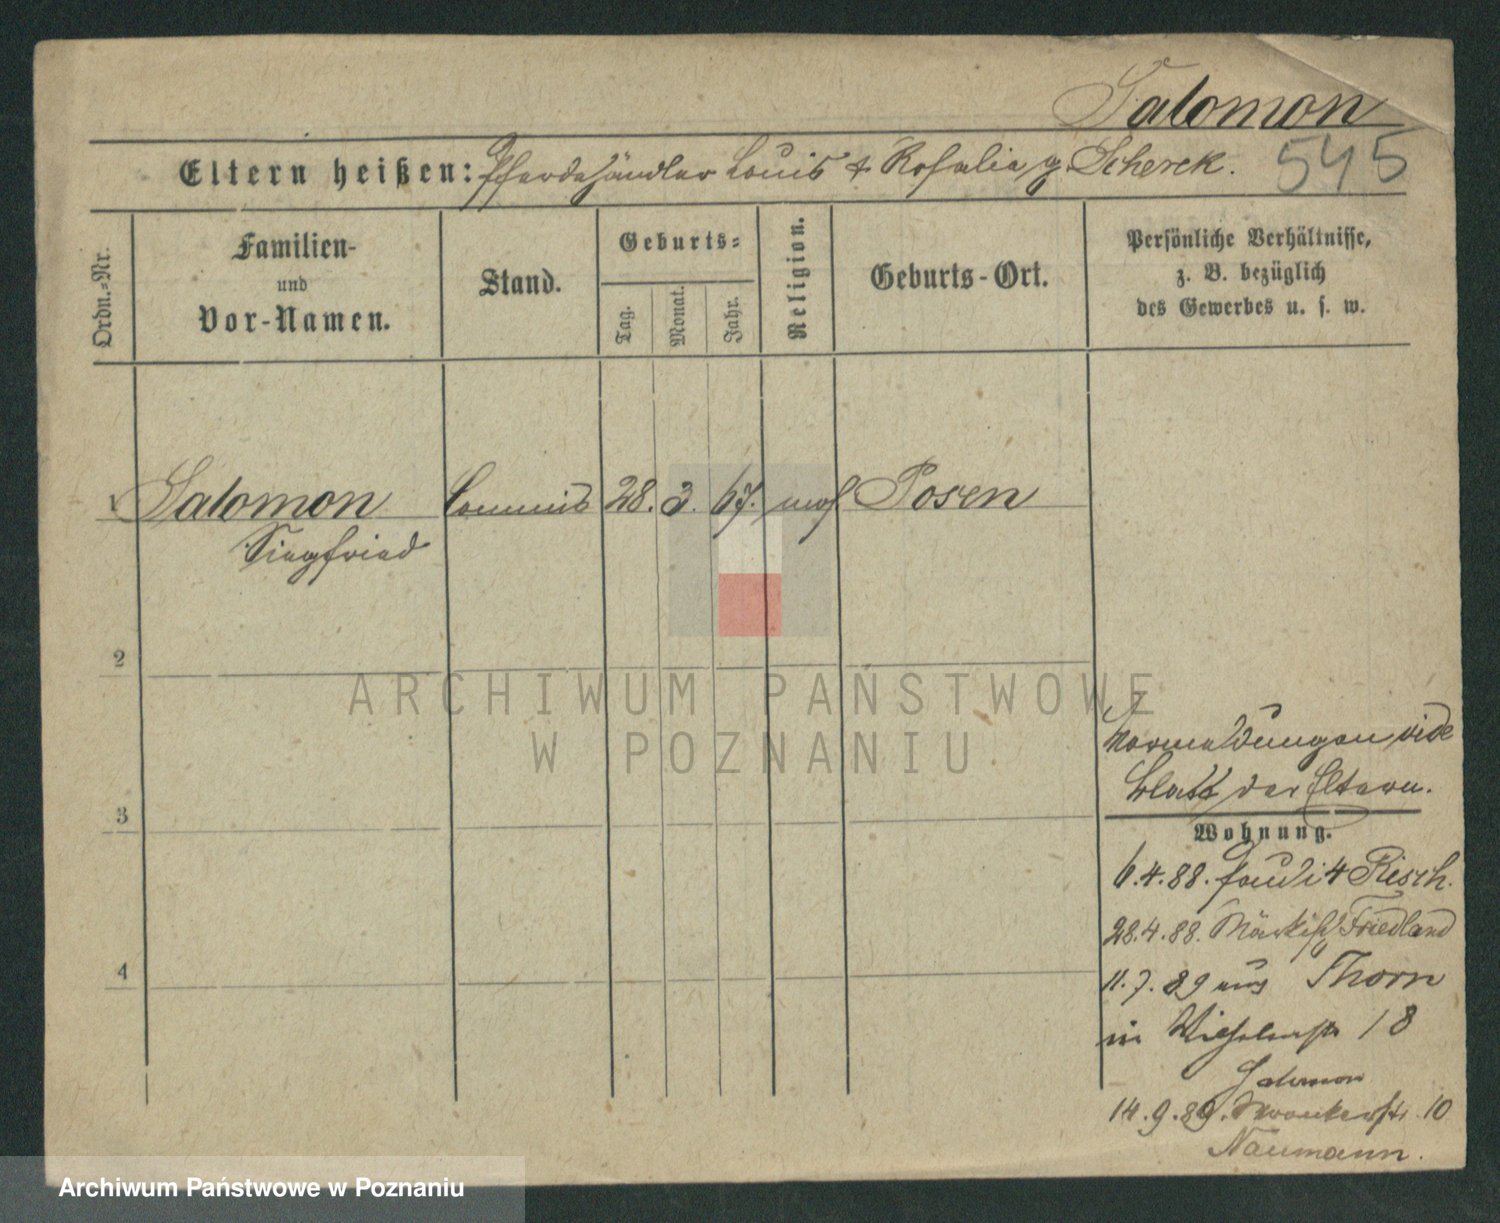 Salomon
Eltern heißen: Pferdehändler Louis & Rosalie g. Scherek. 545
Ordn.-Nr.
Familien-
und
Vor-Namen.
Stand.
Geburts=
Tag.
Monat.
Jahr.
Religion.
Geburts-Ort.
Persönliche Verhältnisse,
z. B. bezüglich
des Gewerbes u. s. w.
1 Salomon Commis 28. 3. 67. mos Posen
Siegfried
2
3
4
ARCHIWUM PAŃSTWOWE
W POZNANIU
Vormeldungen vide
Blatt der Eltern.
Wohnung.
6.4.88. 4 Risch.
28.4.88. Märkisch Friedland
11.7.89 aus Thorn
in Wilhelmstr 18
Salomon
14.9.89. Wronkerstr. 10
Naumann.
Archiwum Państwowe w Poznaniu